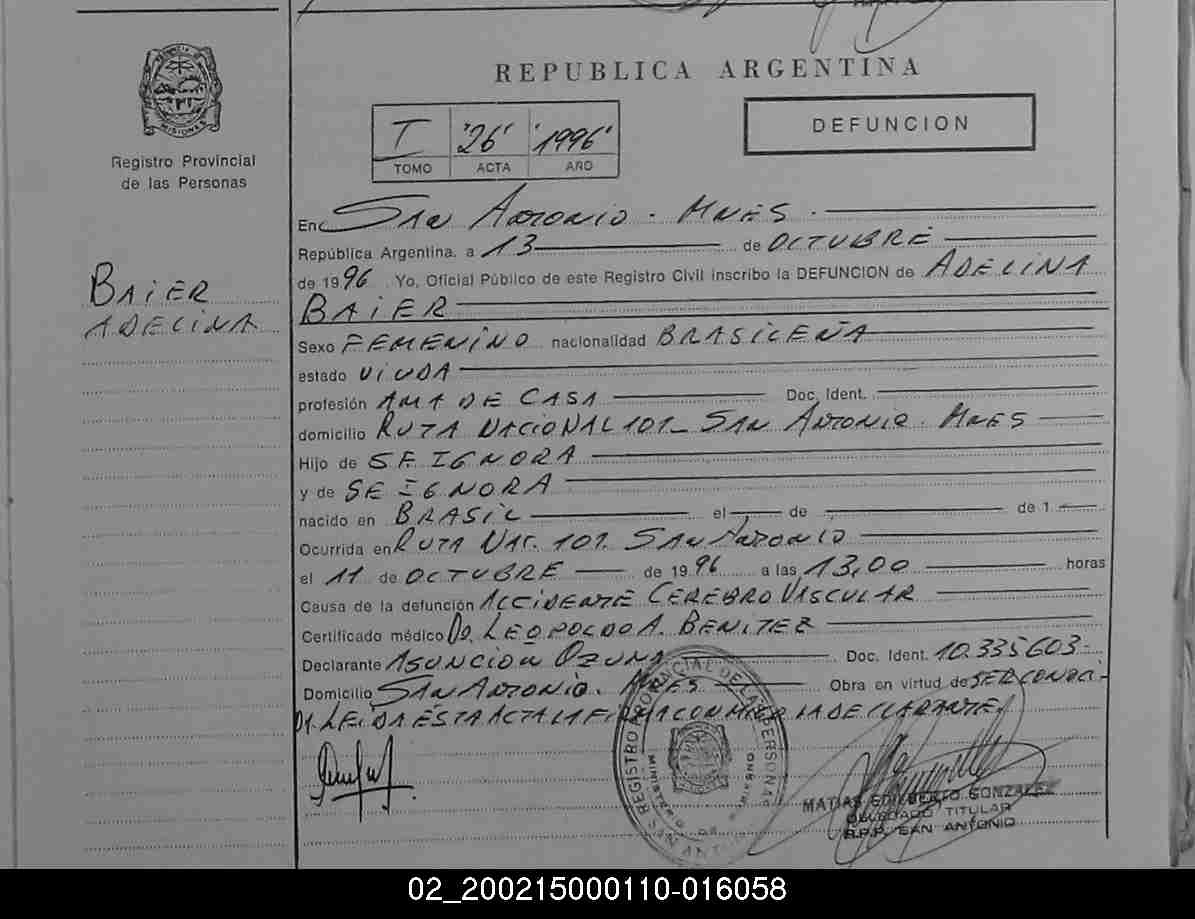 REPUBLICA ARGENTINA
PROVINCIA DE MISIONES
Registro Provincial
de las Personas
I '26' '1996'
TOMO ACTA AÑO
DEFUNCION
BAIER
ADELINA
En SAN ANTONIO - MNES -
República Argentina, a 13 de OCTUBRE
de 1996 Yo, Oficial Público de este Registro Civil inscribo la DEFUNCION de ADELINA
BAIER
Sexo FEMENINO nacionalidad BRASILEÑA
estado VIUDA
profesión AMA DE CASA Doc. Ident.
domicilio RUTA NACIONAL 101 - SAN ANTONIO - MNES
Hijo de SE IGNORA
y de SE IGNORA
nacido en BRASIL el de de 1
Ocurrida en RUTA NAC. 101. SAN ANTONIO
el 11 de OCTUBRE de 1996 a las 13,00 horas
Causa de la defunción ACCIDENTE CEREBRO VASCULAR
Certificado médico Dr. LEOPOLDO A. BENITEZ
Declarante ASUNCION OZUNA Doc. Ident. 10.335.603-
Domicilio SAN ANTONIO. MNES Obra en virtud de SER CONOCI-
DA. LEIDA ESTA ACTA LA FIRMA CONMIGO LA DECLARANTE.
REGISTRO PROVINCIAL DE LAS PERSONAS
MINISTERIO DE
SAN ANTONIO
MATIAS EDILBERTO GONZALEZ
DELEGADO TITULAR
R.P.P. SAN ANTONIO
02_200215000110-016058